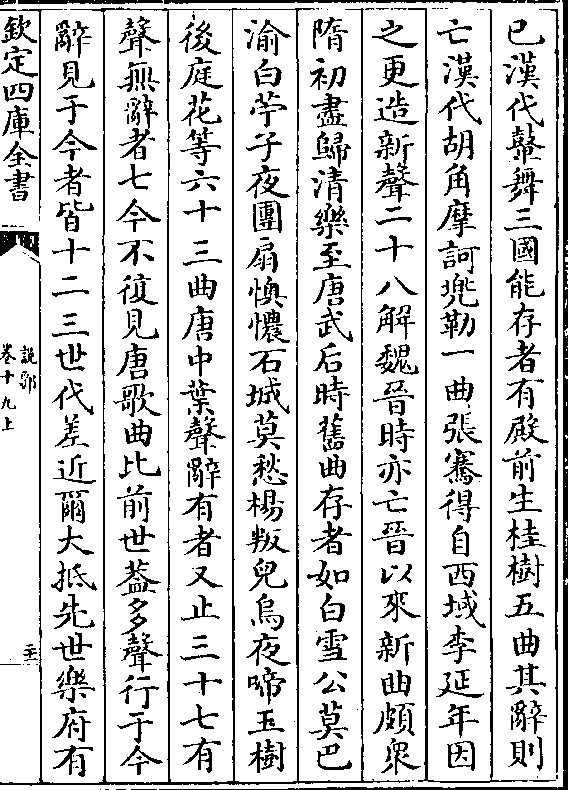 已漢代鼙舞三國能存者有殿前生桂樹五曲其辭則
亡漢代胡角摩訶兠勒一曲張騫得自西域李延年因
之更造新聲二十八解魏晉時亦亡晉以來新曲頗衆
隋初盡歸清樂至唐武后時舊曲存者如白雪公莫巴
渝白苧子夜團扇懊憹石城莫愁楊叛兒烏夜啼玉樹
後庭花等六十三曲唐中葉聲辭有者又止三十七有
聲無辭者七今不復見唐歌曲比前世益多聲行于今
辭見于今者皆十二三世代差近爾大抵先世樂府有
欽定四庫全書
說郛
卷十九上